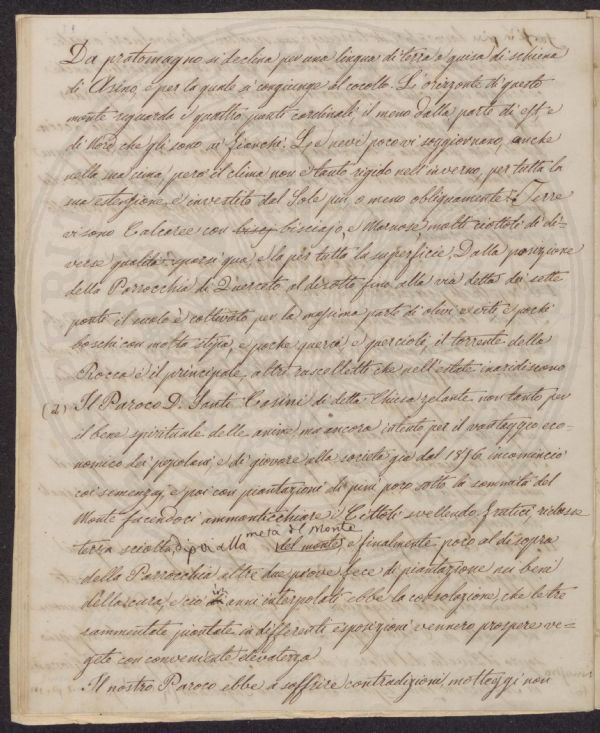 Da pratomagno si declina per una lingua di terra a guisa di schiena
di Asino, e per la quale si congiunge al cocollo. L'orizzonte di questo
monte riguarda i quattro punti cardinali, il meno dalla parte di est, e
di Nord che gli sono ai fianchi. Le nevi poco vi soggiornano, anche
nella sua cima, però il clima non è tanto rigido nell'inverno, per tutta la
sua estensione, è investito dal Sole più, o meno obliquamente. Terre
vi sono Calcaree con bisciajo, e Marnose, molti ciottoli di di-
verse qualità sparsi qua, e là per tutta la superficie. Dalla posizione
della Parrocchia di Querceto al disotto fino alla via detta dei sette
ponti il suolo è coltivato per la massima parte di olivi, e viti, e pochi
boschi con molta stipa, e poche querci, e quercioli, il torrente della
Rocca è il principale, altri ruscelletti che nell'estate inaridiscono
(2) Il Paroco D. Santi Casini di detta Chiesa zelante non tanto per
il bene spirituale delle anime ma ancora intento per il vantaggio eco-
nomico dei popolani, e di giovare alla società già dal 1836 incominciò
coi semenzaj, e poi con piantazioni di pini poco sotto la sommità del
Monte facendoci ammonticchiare i Ciottoli svellendo, e
terra sciolta, dipoi alla metà del Monte
del monte, e finalmente poco al disopra
della Parrocchia altre due prove fece di piantazione nei beni
della cura, e ciò in anni interpolati ebbe la consolazione che le tre
rammentate piantate in differenti esposizioni vennero prospere ve-
gete con conveniente elevatezza
Il nostro Paroco ebbe a soffrire contradizioni, motteggi non